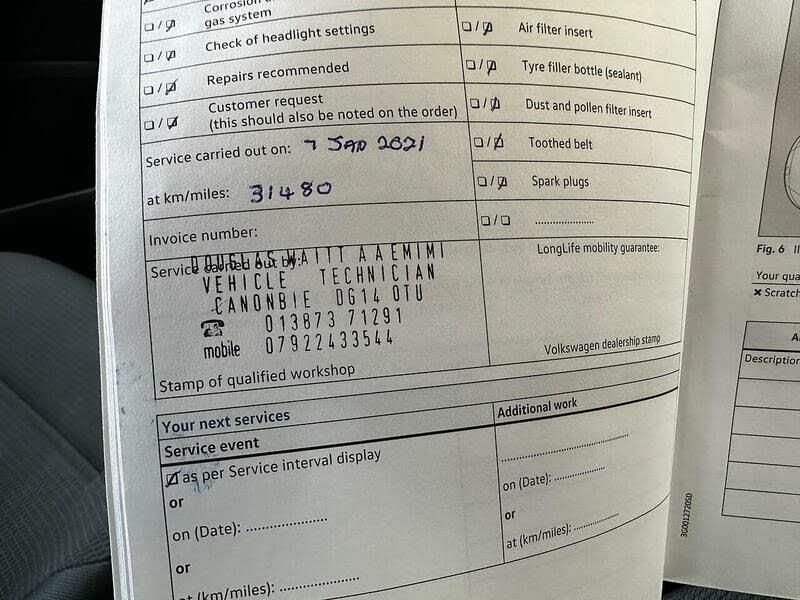 gas system
Check of headlight settings
Repairs recommended
Customer request
(this should also be noted on the order)
Service carried out on: 7 JAN 2021
at km/miles: 31480
Invoice number:
Service carried out by:
DOUGLAS WAITT AAEMIMI
VEHICLE TECHNICIAN
CANONBIE DG14 0TU
013873 71291
mobile 07922433544
Stamp of qualified workshop
Air filter insert
Tyre filler bottle (sealant)
Dust and pollen filter insert
Toothed belt
Spark plugs
....................
LongLife mobility guarantee:
Volkswagen dealership stamp
Your next services
Service event
as per Service interval display
or
on (Date): ....................
or
at (km/miles): ....................
Additional work
....................
on (Date): ....................
or
at (km/miles): ....................
3G0012720SD
Fig. 6
Your qua
Scratch
Description